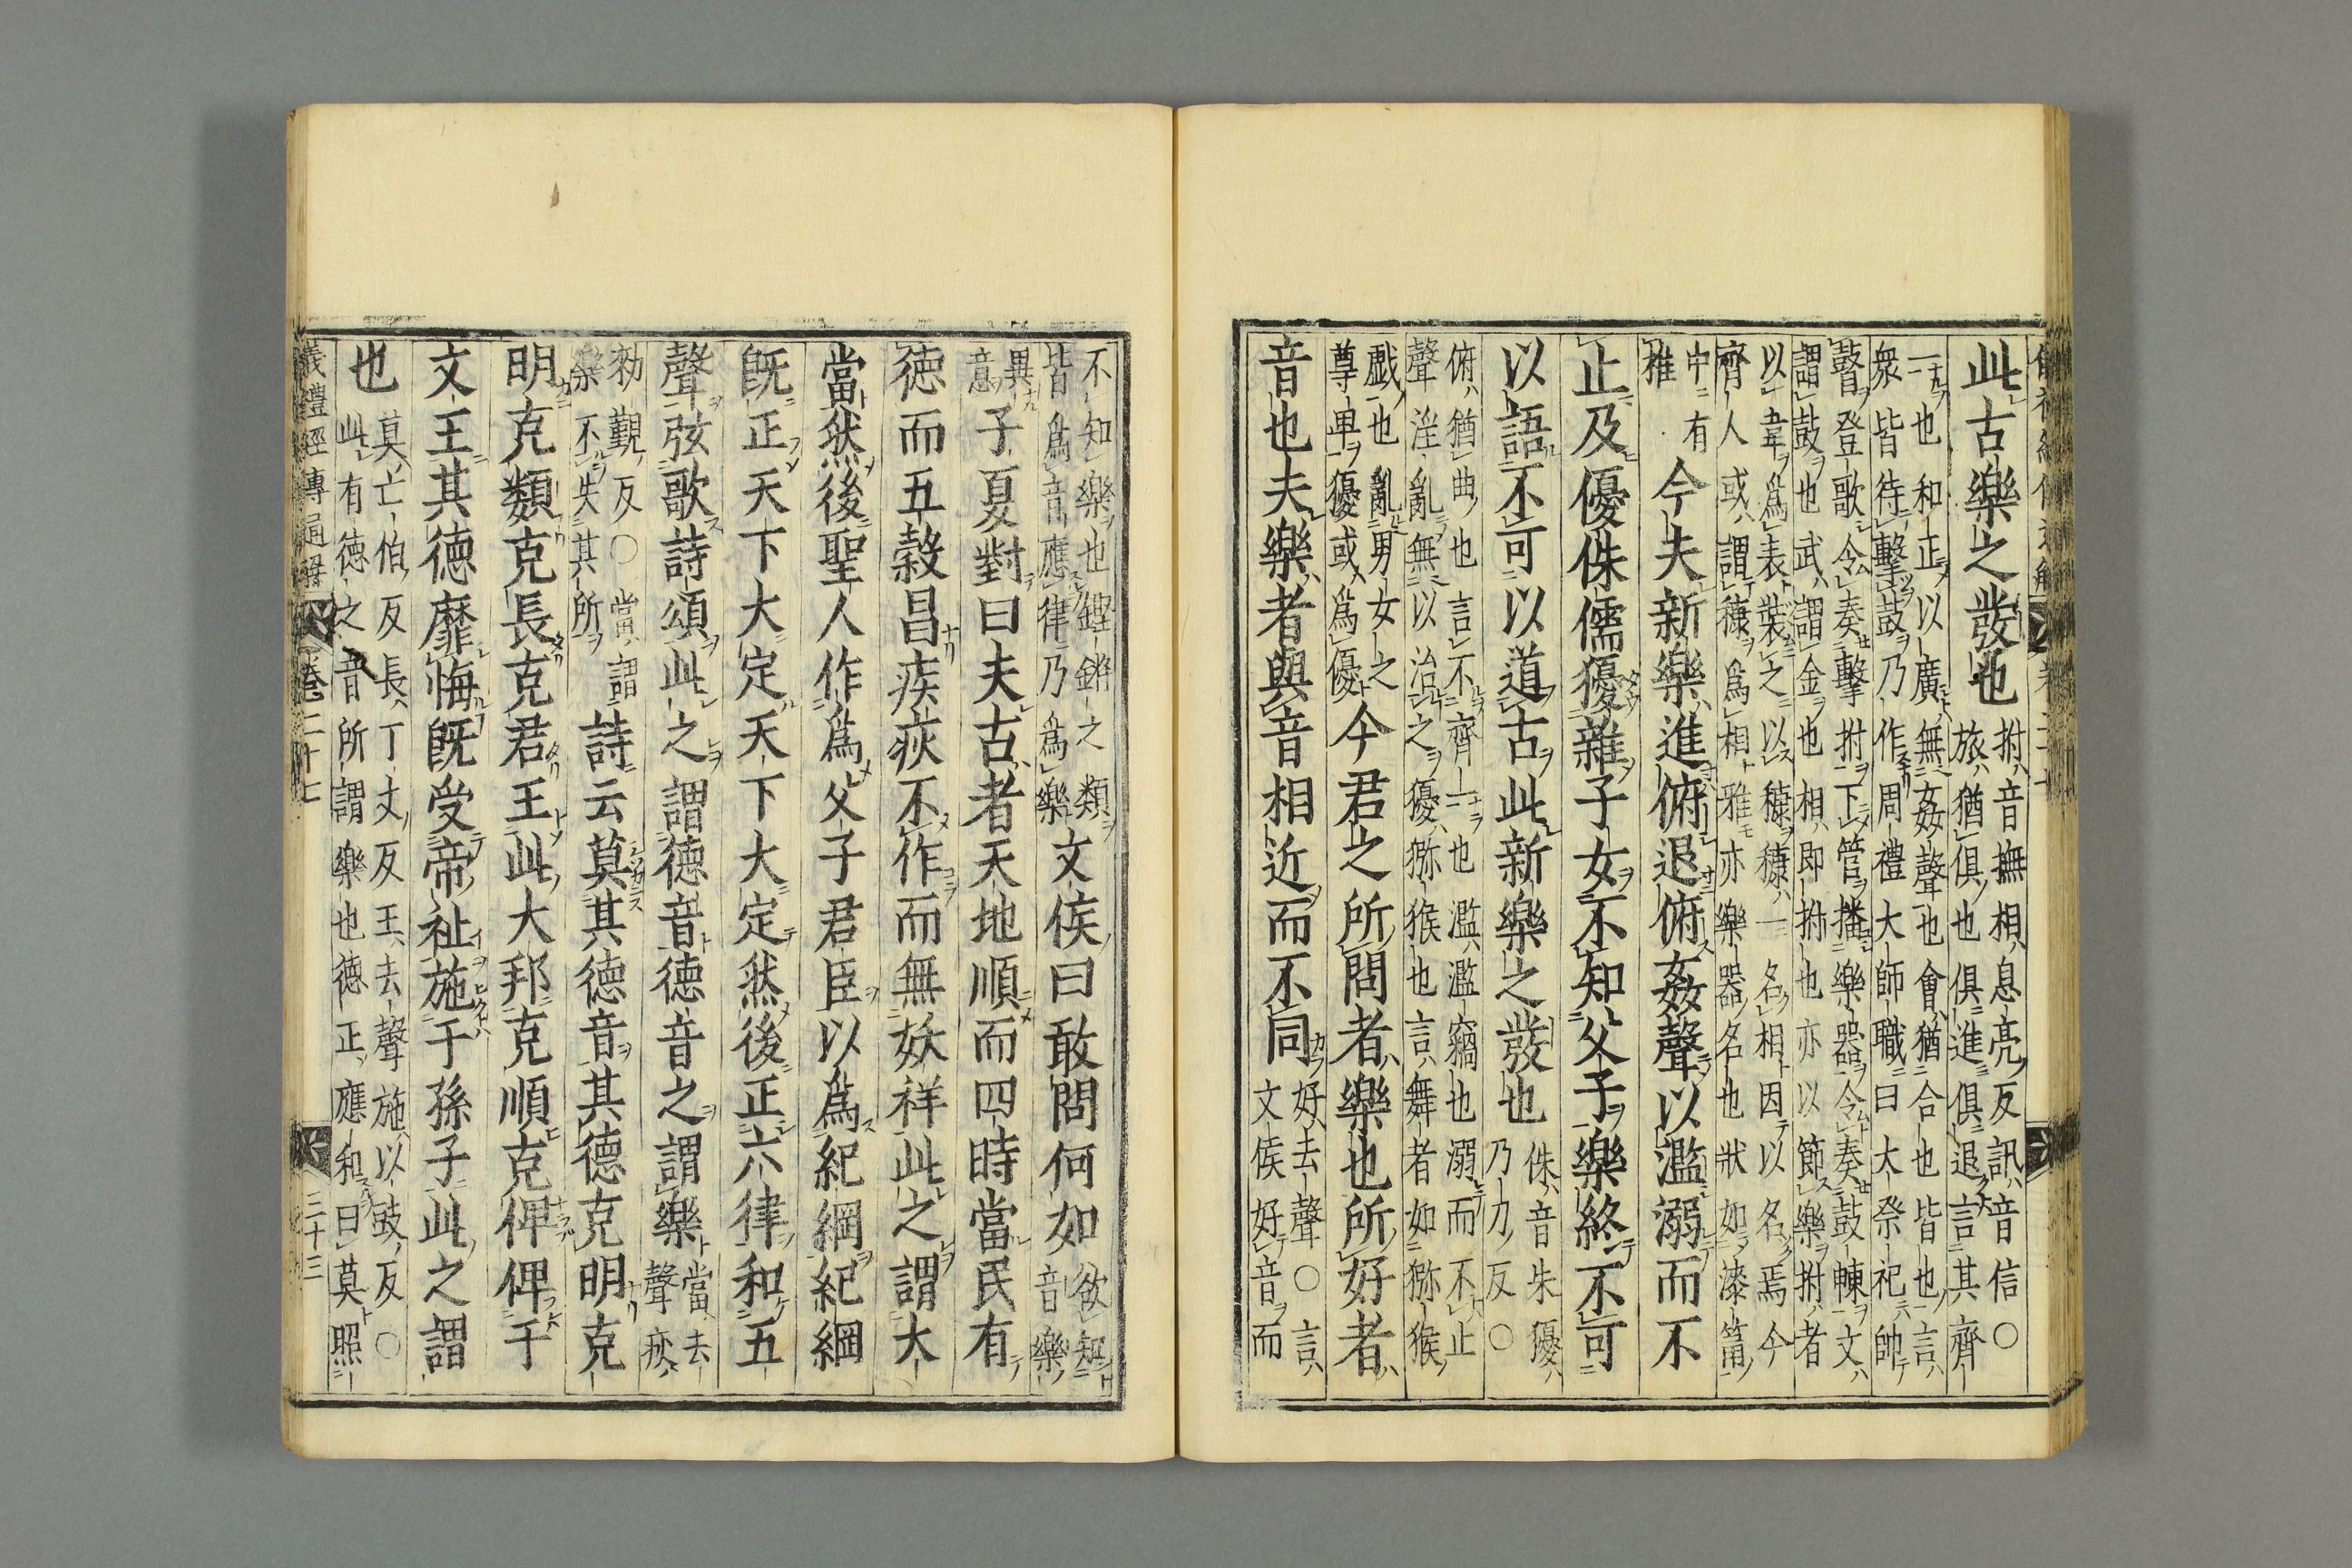 此古樂之發也 拊音撫相息亮反訊音信〇
旅猶俱也俱進俱退言其齊
一也和正以廣無姦聲也會猶合也皆也言
衆皆待擊鼓乃作周禮大師職曰大祭祀帥
瞽登歌令奏擊拊下管播樂器令奏鼓朄文
謂鼓也武謂金也相即拊也亦以節樂拊者
以韋爲表裝之以穅穅一名相因以名焉今
齊人或謂穅爲相雅亦樂器名也狀如漆筩
中有
椎 今夫新樂進俯退俯姦聲以濫溺而不
止及優侏儒獶雜子女不知父子樂終不可
以語不可以道古此新樂之發也 侏音朱獶
乃刀反〇
俯猶曲也言不齊一也濫濫竊也溺而不止
聲淫亂無以治之獶獼猴也言舞者如獼猴
戲也亂男女之
尊卑獶或爲優 今君之所問者樂也所好者
音也夫樂者與音相近而不同 好去聲〇言
文侯好音而
不知樂也鏗鏘之類
皆爲音應律乃爲樂 文侯曰敢問何如 欲知
音樂
異
意 子夏對曰夫古者天地順而四時當民有
德而五穀昌疾疢不作而無妖祥此之謂大
當然後聖人作爲父子君臣以爲紀綱紀綱
既正天下大定天下大定然後正六律和五
聲弦歌詩頌此之謂德音德音之謂樂 當去
聲疢
勑覲反〇當謂
樂不失其所 詩云莫其德音其德克明克
明克類克長克君王此大邦克順克俾俾于
文王其德靡悔既受帝祉施于孫子此之謂
也 莫亡伯反長丁丈反王去聲施以豉反〇
此有德之音所謂樂也德正應和曰莫照
義禮經傳通解 卷二十七 三十三